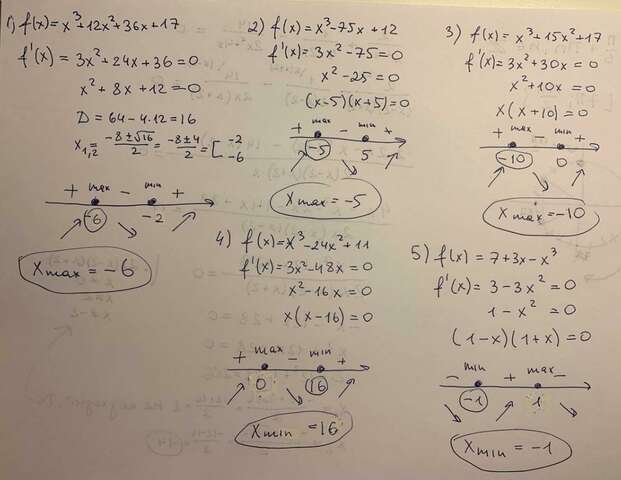 1) f(x) = x³+12x²+36x+17
f'(x) = 3x²+24x+36=0
x²+8x+12=0
D = 64-4·12=16
x₁,₂ = (-8±√16)/2 = (-8±4)/2 = [ -2
-6
+ max - min +
-6 -2
Xmax = -6
2) f(x)=x³-75x+12
f'(x) = 3x²-75=0
x²-25=0
(x-5)(x+5)=0
+ max - min +
-5 5
Xmax = -5
3) f(x) = x³+15x²+17
f'(x) = 3x²+30x = 0
x²+10x=0
x(x+10)=0
+ max - min +
-10 0
Xmax = -10
4) f(x)=x³-24x²+11
f'(x) = 3x²-48x=0
x²-16x=0
x(x-16)=0
+ max - min +
0 16
Xmin = 16
5) f(x) = 7+3x-x³
f'(x) = 3-3x²=0
1-x²=0
(1-x)(1+x)=0
- min + max -
-1 1
Xmin = -1